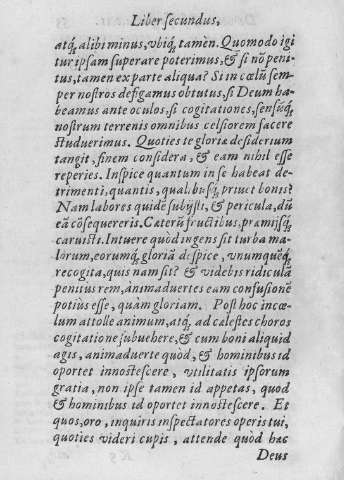 Liber secundus,
atq́; alibi minus, vbiq́; tamèn. Quomodo igi
tur ipsam superare poterimus, & si nõ peni-
tus, tamen ex parte aliqua? Si in cœlũ sem-
per nostros defigamus obtutus, si Deum ha-
beamus ante oculos, si cogitationes, sensúq́;
nostrum terrenis omnibus celsiorem facere
studuerimus. Quoties te gloriæ desiderium
tangit, finem considera, & eam nihil esse
reperies. Inspice quantum in se habeat de-
trimenti, quantis, qualibusq́; priuet bonis?
Nam labores quidẽ subijsti, & pericula, dũ
eã cõsequereris. Caterũ fructibus, præmijsq́;
caruisti. Intuere quòd ingens sit turba ma-
lorum, eorumq́; gloriã despice, vnumquẽq́;
recogita, quis nam sit? & videbis ridiculã
penitus rem, animaduertes eam confusionẽ
potiùs esse, quàm gloriam. Post hoc in cœ-
lum attolle animum, atq́; ad cælestes choros
cogitatione subuehere, & cum boni aliquid
agis, animaduerte quòd, & hominibus id
oportet innotescere, vtilitatis ipsorum
gratia, non ipse tamen id appetas, quod
& hominibus id oportet innotescere. Et
quos, oro, inquiris inspectatores operis tui,
quoties videri cupis, attende quòd hæc
Deus